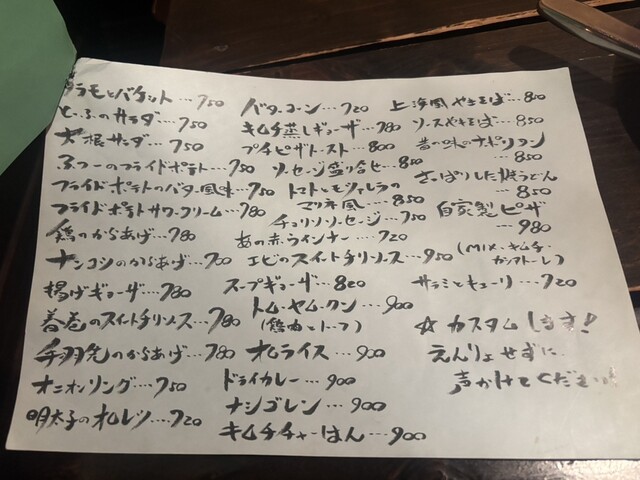 タラモとバケット…750
とーふのサラダ…750
大根サラダ…750
ふつーのフライドポテト…750
フライドポテトのバター風味…750
フライドポテトサワークリーム…780
鶏のからあげ…780
ナンコツのからあげ…700
揚げギョーザ…780
春巻のスイートチリソース…780
手羽先のからあげ…780
オニオンリング…750
明太子のオムレツ…720
バターコーン…720
キムチ蒸しギョーザ…780
プチピザトースト…800
ソーセージ盛り合せ…850
トマトとモツァレラの
マリネ風…850
チョリソソーセージ…750
あの赤いウインナー…720
エビのスイートチリソース…950
スープギョーザ…820
トム・ヤム・クン…900
(鶏肉とトーフ)
オムライス…900
ドライカレー…900
ナシゴレン…900
キムチチャーはん…900
上海風やきそば…800
ソースやきそば…850
昔の味のナポリタン
…850
さっぱりした焼うどん
…850
自家製ピザ
…980
(MIX・キムチ・
)
サラミとキューリ…720
☆カスタムします!
えんりょせずに
声かけてください